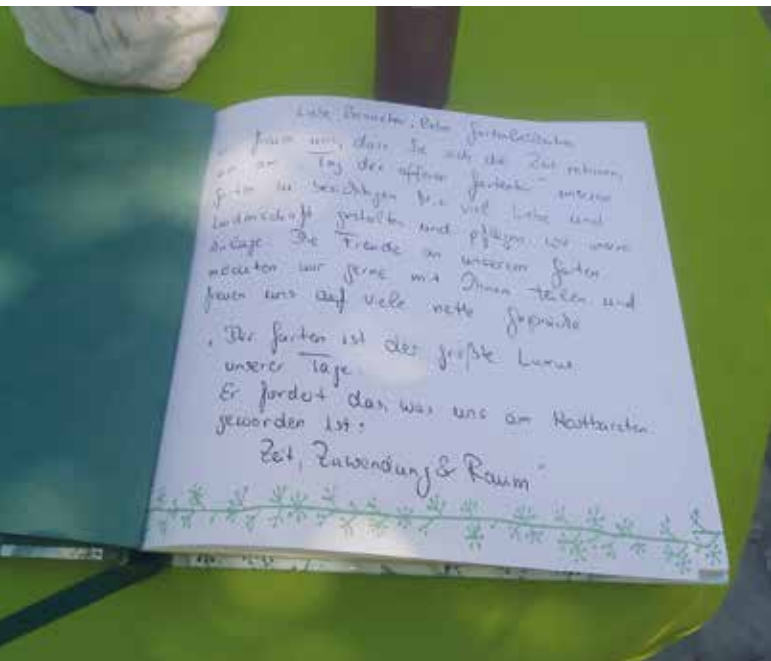 Liebe Besucher, liebe Gartenliebhaber
freuen uns, dass Sie sich die Zeit nehmen,
am Tag der offenen Gärten" unseren
Garten zu besichtigen. Mit viel Liebe und
Leidenschaft gestalten und pflegen wir unsere
Anlage. Die Freude an unserem Garten
möchten wir gerne mit Ihnen teilen und
freuen uns auf viele nette Gespräche
„Der Garten ist der größte Luxus
unserer Tage.
Er fordert das, was uns am Kostbarsten
geworden ist:
Zeit, Zuwendung & Raum"